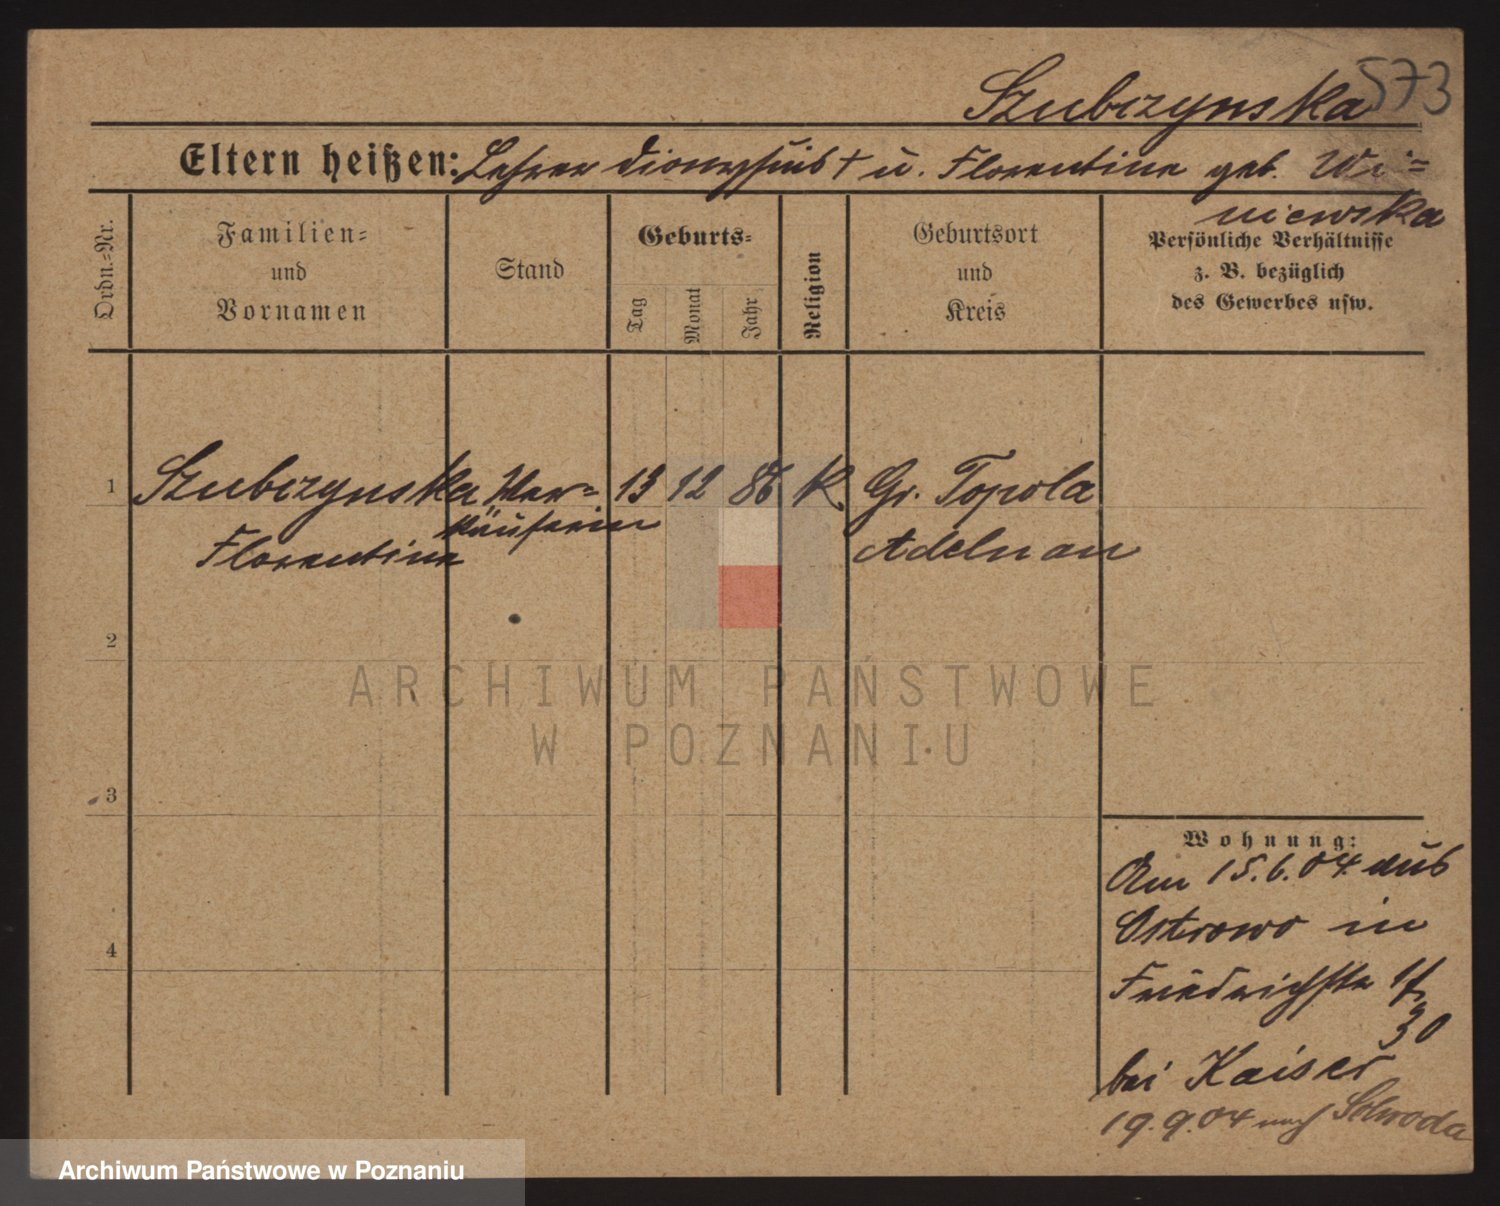 Szubczynska 573
Eltern heißen: Lehrer Dionysius † u. Florentine geb. Wi=
niewska
Ordn.=Nr.
Familien=
und
Vornamen
Stand
Geburts=
Tag
Monat
Jahr
Religion
Geburtsort
und
Kreis
Persönliche Verhältnisse
z. B. bezüglich
des Gewerbes usw.
1 Szubczynska Ver= 13 12 86 K Gr. Topola
käuferin
Florentine Adelnau
2
3
4
Wohnung:
Am 15.6.04. aus
Ostrowo in
Friedrichstr
30
bei Kaiser
19.9.04 nach
ARCHIWUM PAŃSTWOWE
W POZNANIU
Archiwum Państwowe w Poznaniu